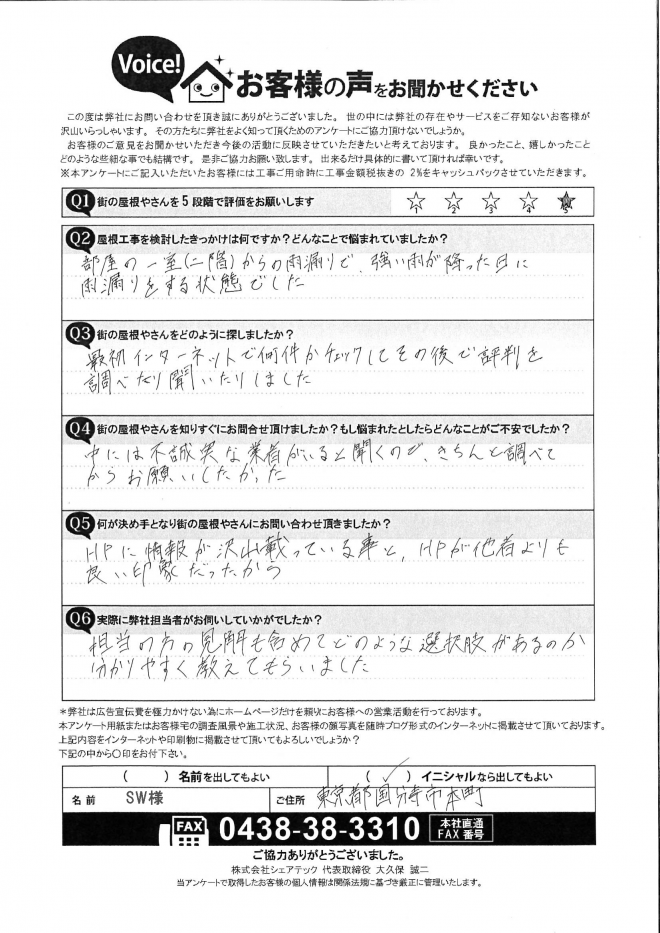 Voice!
お客様の声をお聞かせください
この度は弊社にお問い合わせを頂き誠にありがとうございました。世の中には弊社の存在やサービスをご存知ないお客様が
沢山いらっしゃいます。その方たちに弊社をよく知って頂くためのアンケートにご協力頂けないでしょうか。
お客様のご意見をお聞かせいただき今後の活動に反映させていただきたいと考えております。良かったこと、嬉しかったこと
どのような些細な事でも結構です。是非ご協力お願い致します。出来るだけ具体的に書いて頂ければ幸いです。
※本アンケートにご記入いただいたお客様には工事ご用命時に工事金額税抜きの 2%をキャッシュバックさせていただきます。
Q1 街の屋根やさんを5段階で評価をお願いします
1 2 3 4 5
Q2 屋根工事を検討したきっかけは何ですか?どんなことで悩まれていましたか?
部屋の一室(二階)からの雨漏りで、強い雨が降った日に
雨漏りをする状態でした
Q3 街の屋根やさんをどのように探しましたか?
最初インターネットで何件かチェックしてその後で評判を
調べたり聞いたりしました
Q4 街の屋根やさんを知りすぐにお問合せ頂けましたか?もし悩まれたとしたらどんなことがご不安でしたか?
中には不誠実な業者がいると聞くので、きちんと調べて
からお願いしたかった
Q5 何が決め手となり街の屋根やさんにお問い合わせ頂きましたか?
HPに情報が沢山載っている事と、HPが他者よりも
良い印象だったから
Q6 実際に弊社担当者がお伺いしていかがでしたか?
担当の方の見解も含めてどのような選択肢があるのか
分かりやすく教えてもらいました
*弊社は広告宣伝費を極力かけない為にホームページだけを頼りにお客様への営業活動を行っております。
本アンケート用紙またはお客様宅の調査風景や施工状況、お客様の顔写真を随時ブログ形式のインターネットに掲載させて頂いております。
上記内容をインターネットや印刷物に掲載させて頂いてもよろしいでしょうか?
下記の中から〇印をお付下さい。
( ) 名前を出してもよい ( ✓ ) イニシャルなら出してもよい
名前 SW様 ご住所 東京都国分寺市本町
FAX 0438-38-3310 本社直通 FAX番号
ご協力ありがとうございました。
株式会社シェアテック 代表取締役 大久保 誠二
当アンケートで取得したお客様の個人情報は関係法規に基づき厳正に管理いたします。